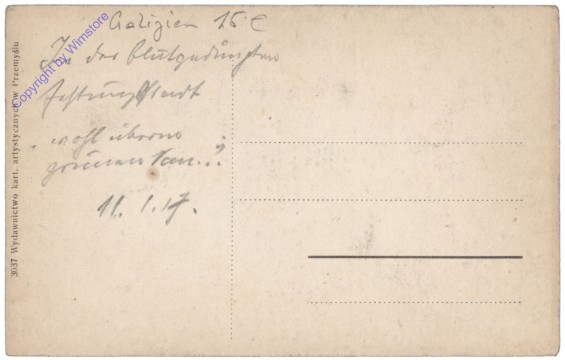 Galizien 15 €
In der blutgedüngten
Festungsstadt
" wohl
grünen
11. 1. 17.
3037 Wydawnictwo kart. artystycznych w Przemyślu
Copyright by Wimstore